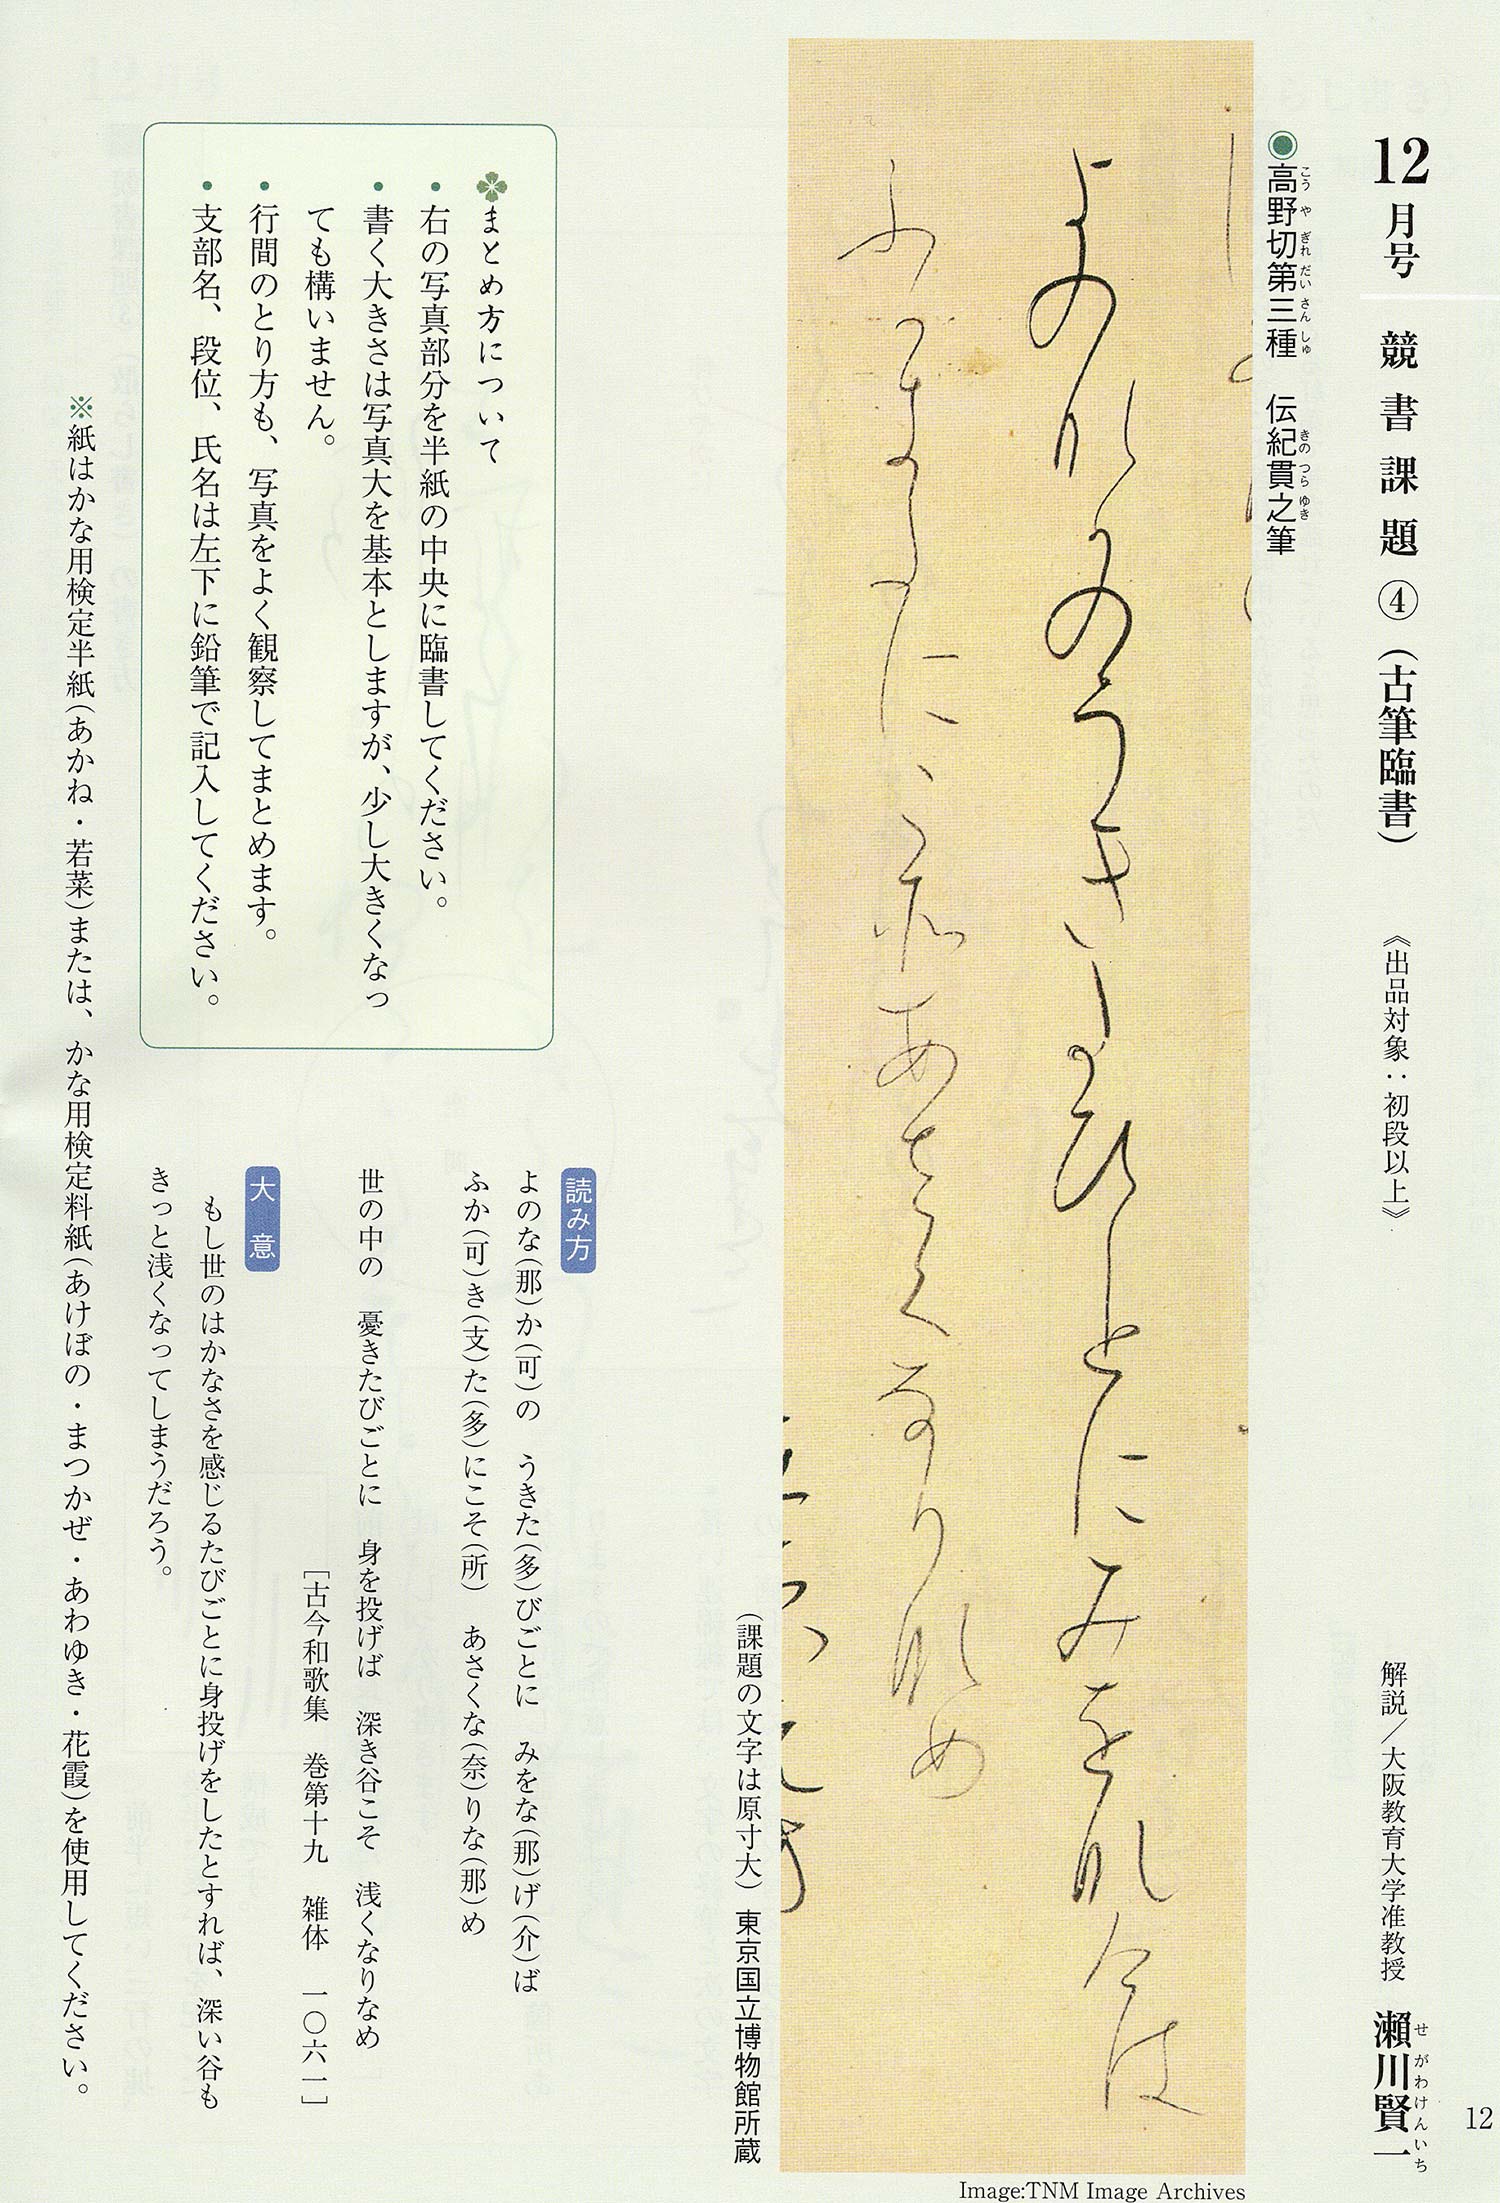 12月号 競書課題④（古筆臨書） 《出品対象：初段以上》 解説／大阪教育大学准教授 瀬川賢一
せがわけんいち
12
◉高野切第三種 伝紀貫之筆
こうやぎれだいさんしゅ きのつらゆき
よのな可のうきたひことにみをな介は
ふ可き多にこ所あさくなりなめ
Image:TNM Image Archives
（課題の文字は原寸大） 東京国立博物館所蔵
読み方
よのな（那）か（可）の うきた（多）びごとに みをな（那）げ（介）ば
ふか（可）き（支）た（多）にこそ（所） あさくな（奈）りな（那）め
世の中の 憂きたびごとに 身を投げば 深き谷こそ 浅くなりなめ
［古今和歌集 巻第十九 雑体 一〇六一］
大意
もし世のはかなさを感じるたびごとに身投げをしたとすれば、深い谷も
きっと浅くなってしまうだろう。
まとめ方について
・右の写真部分を半紙の中央に臨書してください。
・書く大きさは写真大を基本としますが、少し大きくなっ
ても構いません。
・行間のとり方も、写真をよく観察してまとめます。
・支部名、段位、氏名は左下に鉛筆で記入してください。
※紙はかな用検定半紙（あかね・若菜）または、かな用検定料紙（あけぼの・まつかぜ・あわゆき・花霞）を使用してください。